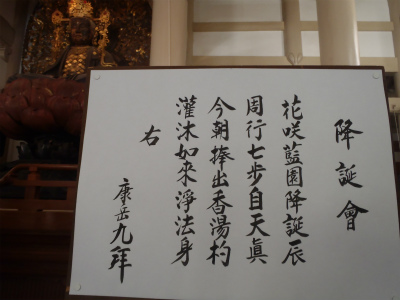 降誕會
花咲藍園降誕辰
周行七歩自天眞
今朝捧出香湯杓
灌沐如來淨法身
右
康岳九拜